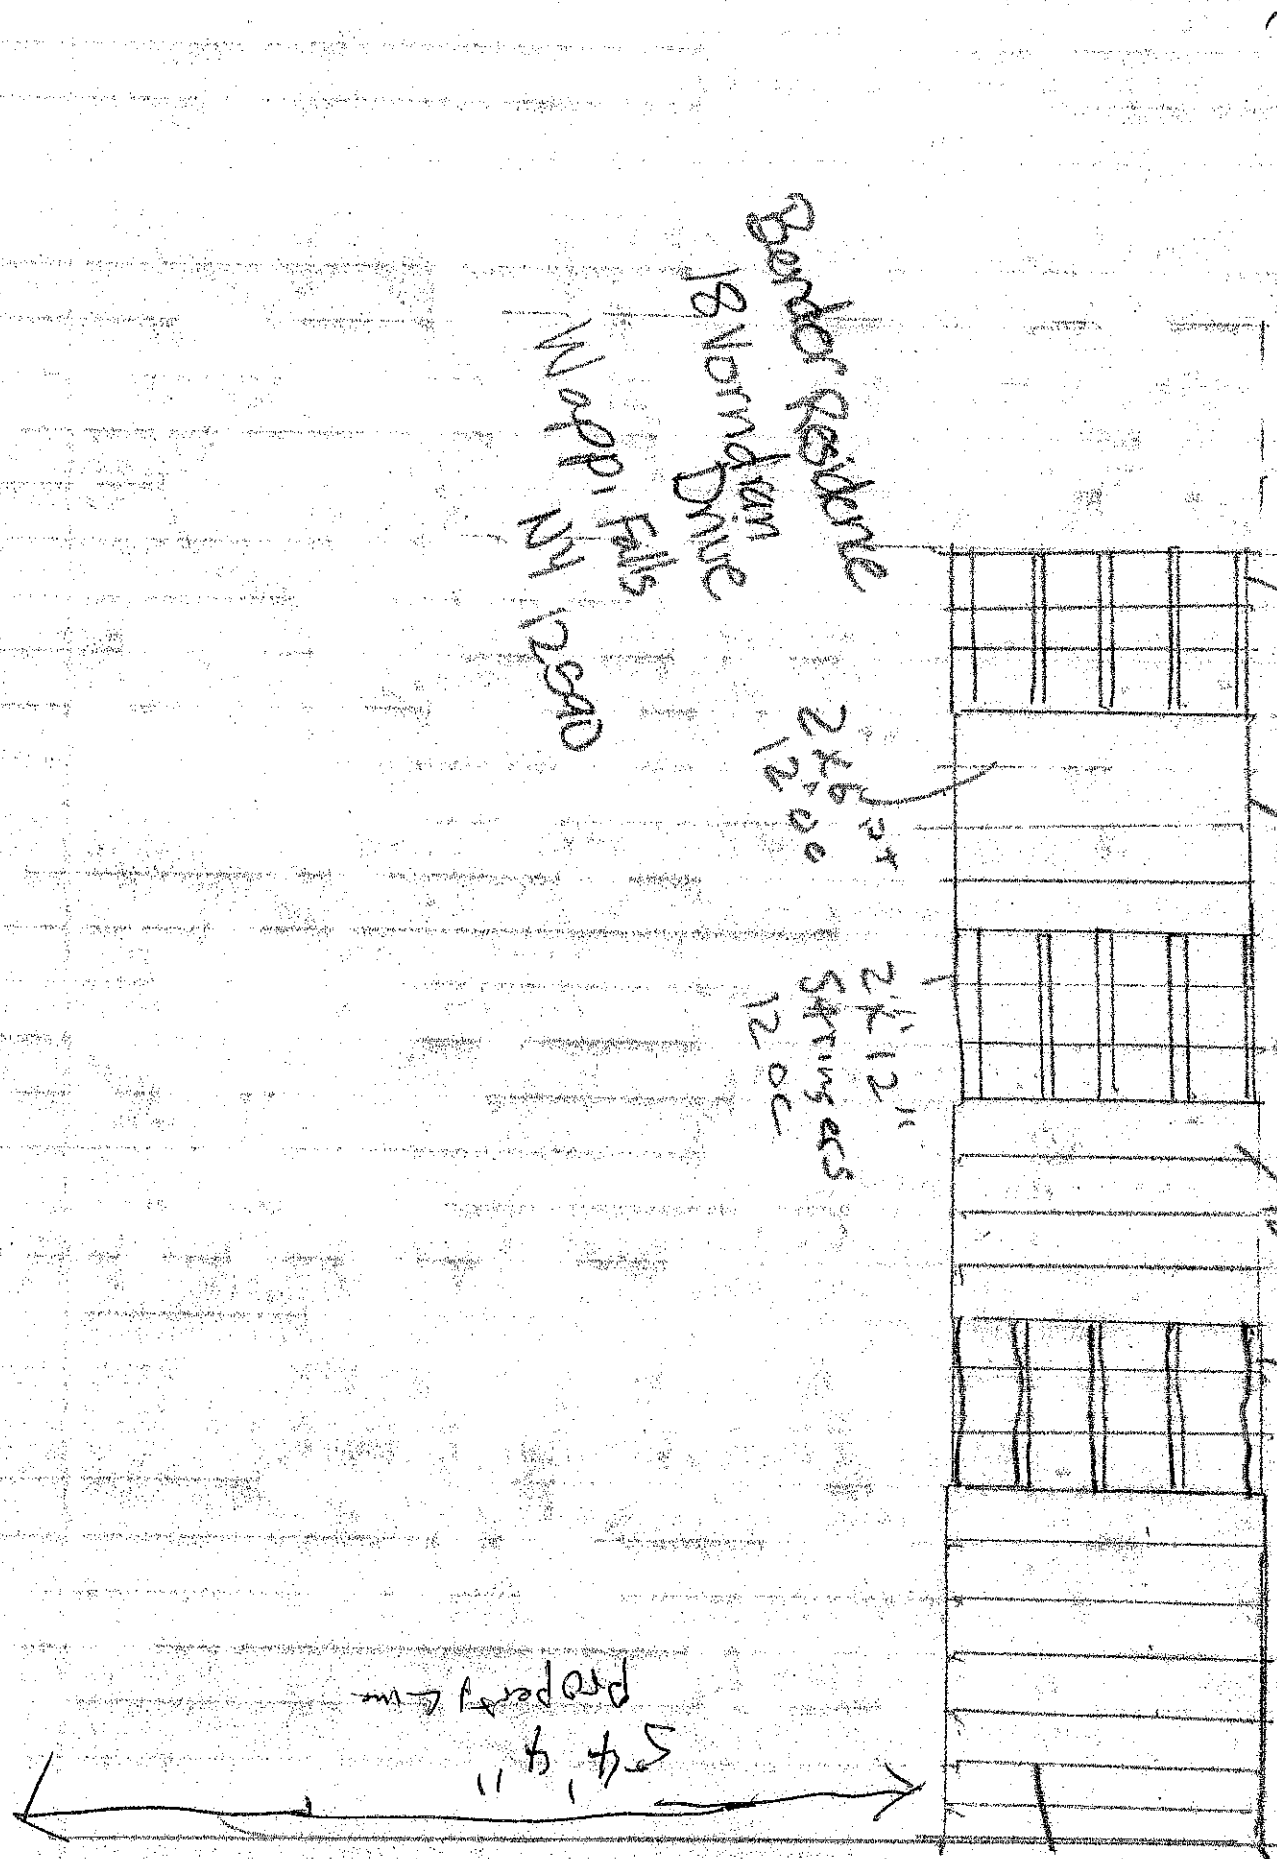 Bender Residence
18 Norn Drive
Wapp. Falls
NY 12590
2x6 PT
12" oc
2"x12"
Stringers
12 oc
54' 4"
property Line